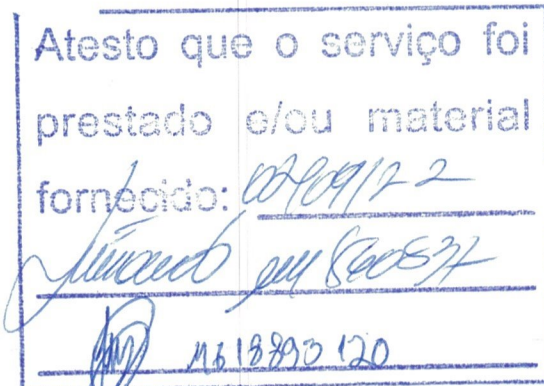 Atesto que o serviço foi
prestado e/ou material
fornecido: 02/09/22
860837
18893120